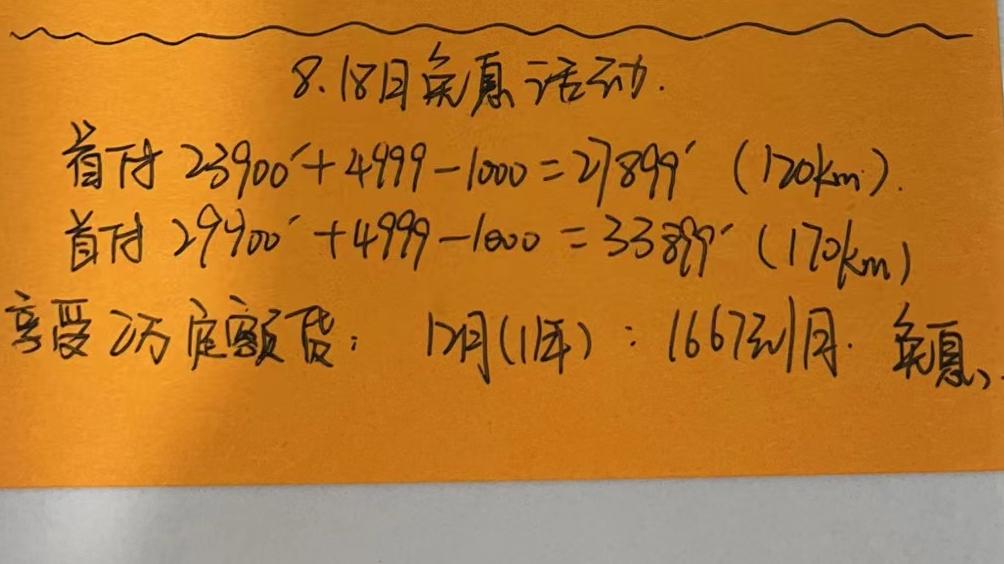 8.18日免息活动.
首付 23900′+4999-1000=27899′ (120km).
首付 29900′+4999-1000=33899′ (170km)
享受2万定额贷: 12月(1年): 1667元/月. 免息、